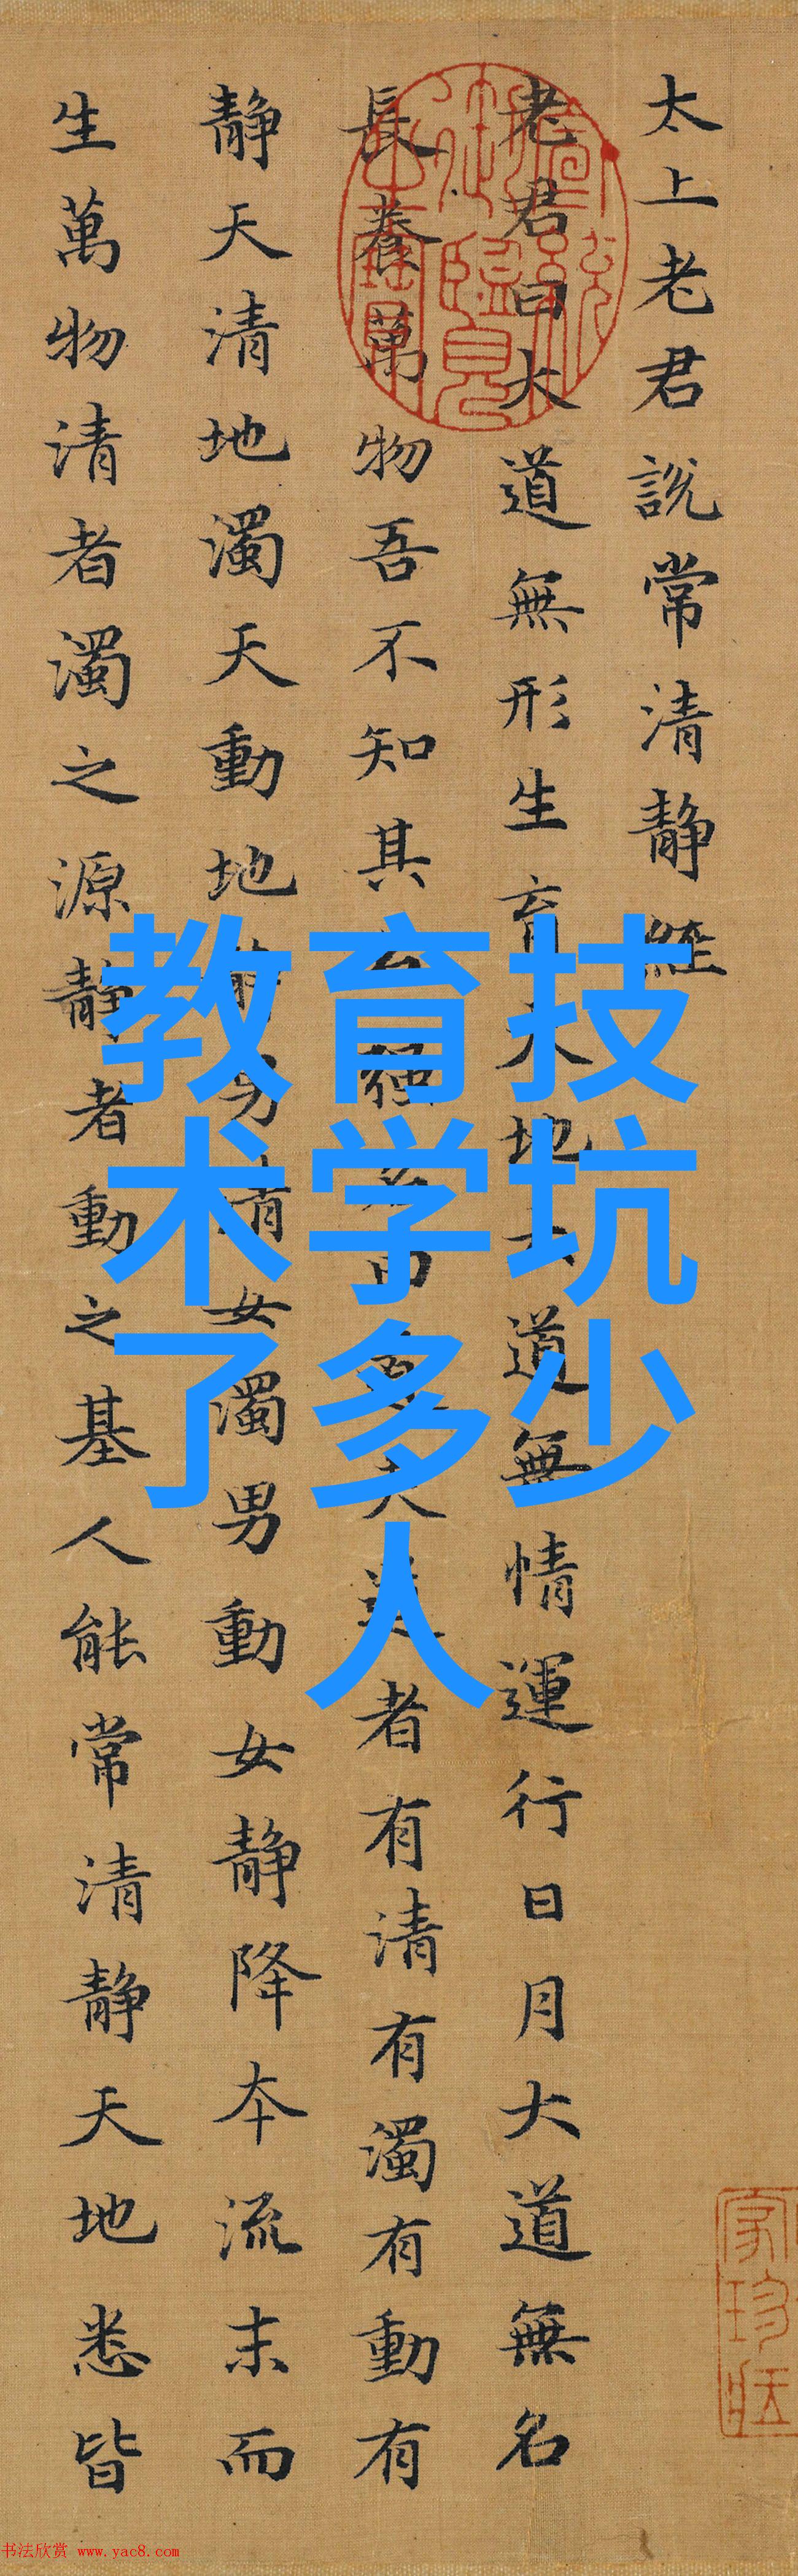 太上老君說常清静經
老君曰大道無形生育天地大道無情運行日月大道無名
長養萬物吾不知其名强名曰道夫道者有清有濁有動有
静天清地濁天動地静男清女濁男動女静降夲流末而
生萬物清者濁之源静者動之基人能常清静天地悉皆
教育技
术学坑
了多少
人
书法欣赏 www.yac8.com